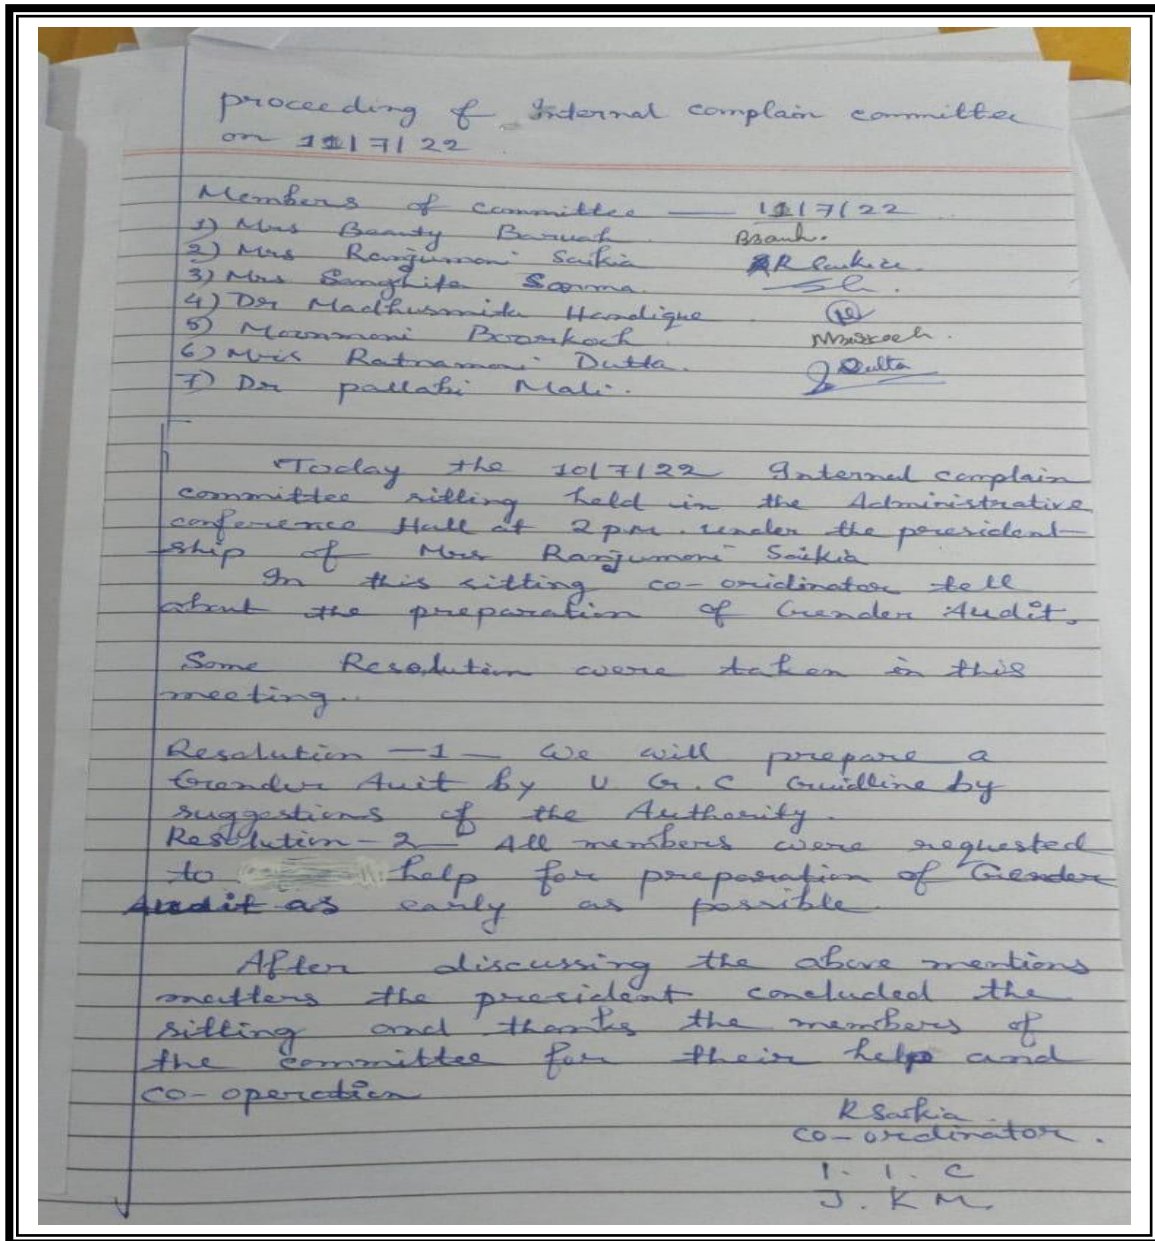 proceeding of Internal complain committee
on 11/7/22
Members of committee — 11/7/22
1) Mrs Beauty Baruah. BBaruh.
2) Mrs Ranjumoni Saikia R Saikia.
3) Mrs Sanghita Sarma.
4) Dr Madhusmita Handique
5) Mammoni Borkoch
6) Mris Ratnamoni Dutta. Dutta
7) Dr pallabi Mali.
Today the 10/7/22 Internal complain
committee sitting held in the Administrative
conference Hall at 2 pm. under the president-
ship of Mrs Ranjumoni Saikia
In this sitting co-oridinator tell
about the preparation of Gender Audit.
Some Resolution were taken in this
meeting..
Resolution — 1 — We will prepare a
Gender Auit by U. G. C Guidline by
suggestions of the Authority.
Resolution - 2 — All members were requested
to help for preparation of Gender
Audit as early as possible.
After discussing the above mentions
matters the president concluded the
sitting and thanks the members of
the committee for their help and
co-operation
R Saikia
co-ordinator.
I. I. C
J. K M.